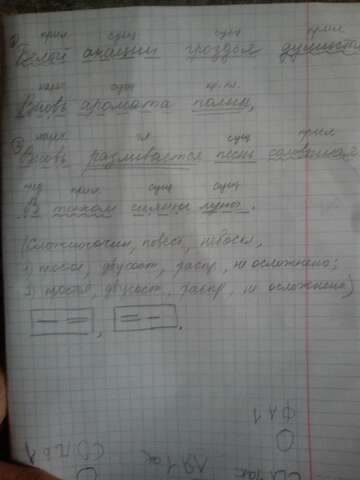 прил. сущ. сущ. прил.
① Белой акации гроздья душистые
нареч. сущ. кр.пр.
Вновь аромата полны,
нареч. гл. сущ. прил.
② Вновь разливается песнь соловьиная
пред. прил. сущ. сущ.
В тихом сиянии луны.
(Сложносочин, повест., невоскл,
1) простое, двусост, распр, не осложнено;
2) простое, двусост, распр, не осложнено)
ФЛ1